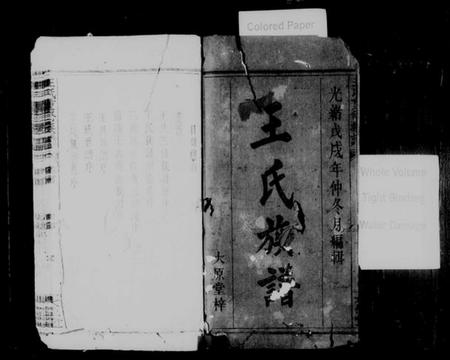 Colored Paper
光緒戊戌年仲冬月編輯
王氏族譜
大原堂梓
Whole Volume
Tight Binding
Water Damage